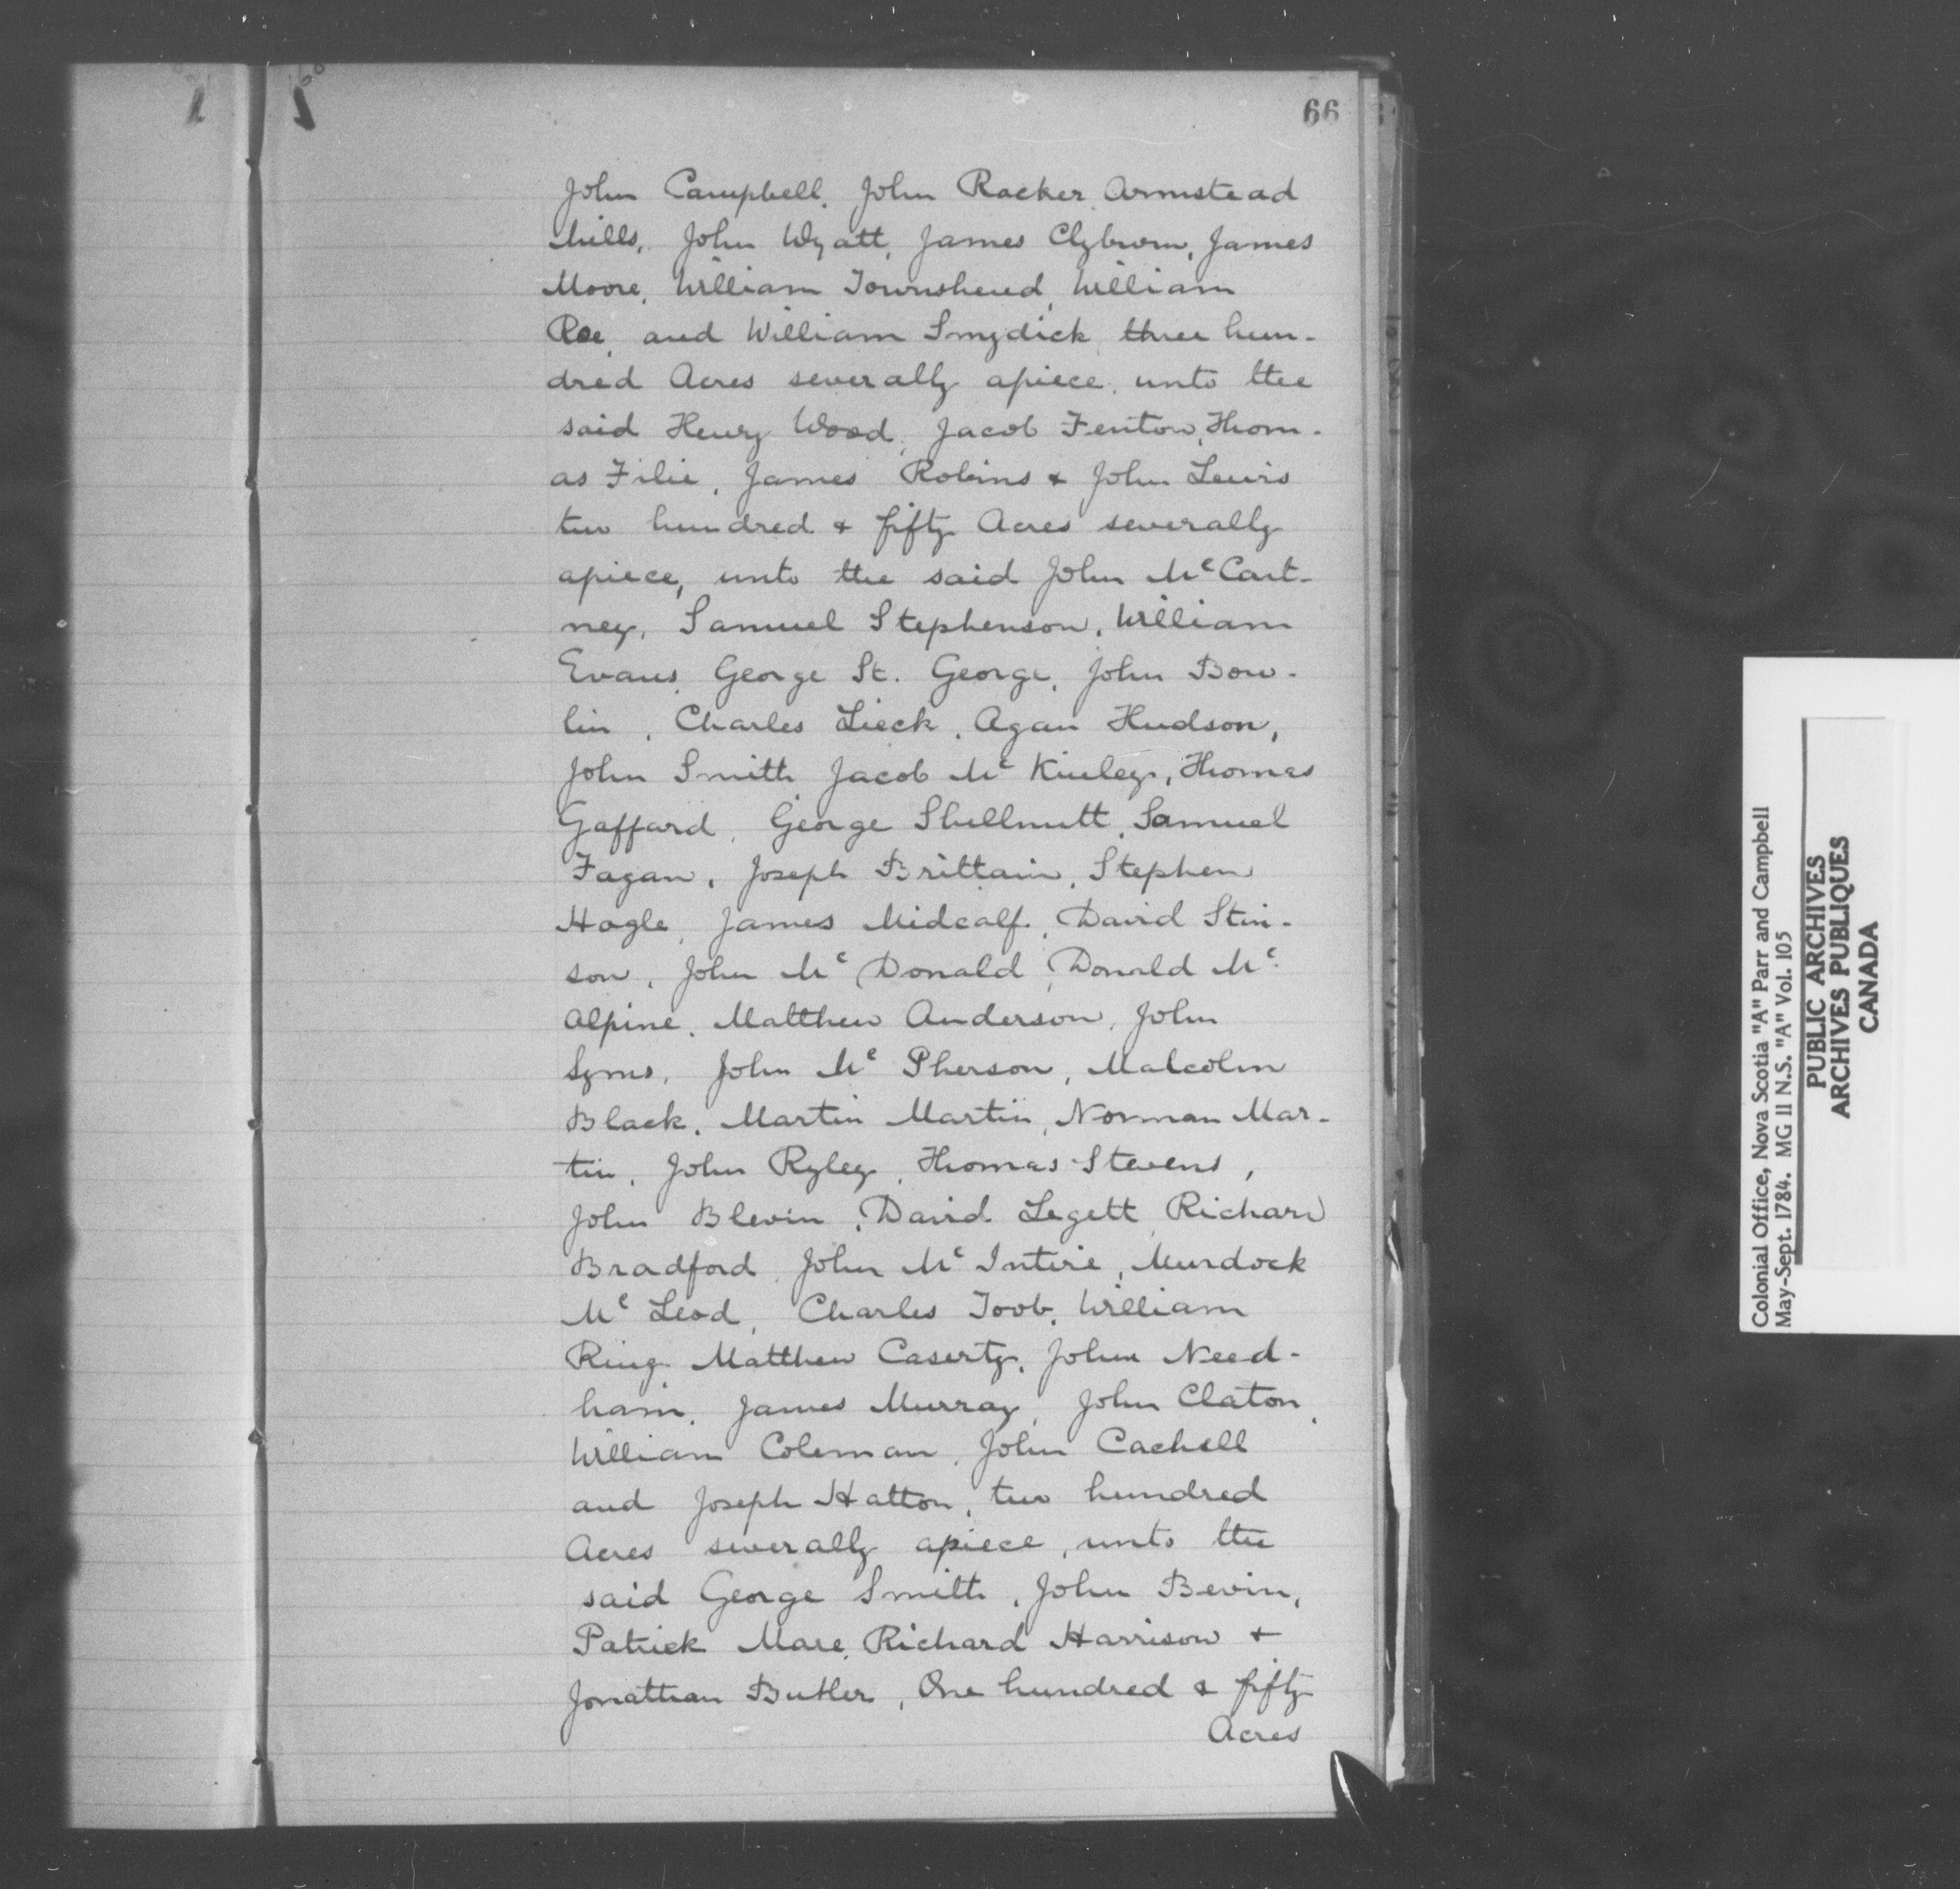 66
John Campbell, John Racker, Armstead
Mills, John Wyatt, James Clyburn, James
Moore, William Townshend, William
Roe, and William Smydick, three hun-
dred Acres severally apiece, unto the
said Henry Wood, Jacob Fenton, Thom-
as Filie, James Robins & John Lewis
two hundred & fifty Acres severally
apiece, unto the said John McCart-
ney, Samuel Stephenson, William
Evans, George St. George, John Bow-
lin, Charles Lieck, Agan Hudson,
John Smith, Jacob Mc Kinley, Thomas
Gaffard, George Shellnutt, Samuel
Fagan, Joseph Brittain, Stephen
Hogle, James Midcalf, David Stin-
son, John Mc Donald, Donald Mc
Alpine, Matthew Anderson, John
Syms, John Mc Pherson, Malcolm
Black, Martin Martin, Norman Mar-
tin, John Ryley, Thomas Stevens,
John Blevin, David Legett, Richard
Bradford, John Mc Intire, Murdock
Mc Leod, Charles Toob, William
Ring, Matthew Caserty, John Need-
ham, James Murray, John Claton,
William Coleman, John Cachell
and Joseph Hatton, two hundred
Acres severally apiece, unto the
said George Smith, John Bevin,
Patrick Mare, Richard Harrison &
Jonathan Butler, One hundred & fifty
Acres
Colonial Office, Nova Scotia "A" Parr and Campbell
May-Sept. 1784. MG 11 N.S. "A" Vol. 105
PUBLIC ARCHIVES
ARCHIVES PUBLIQUES
CANADA